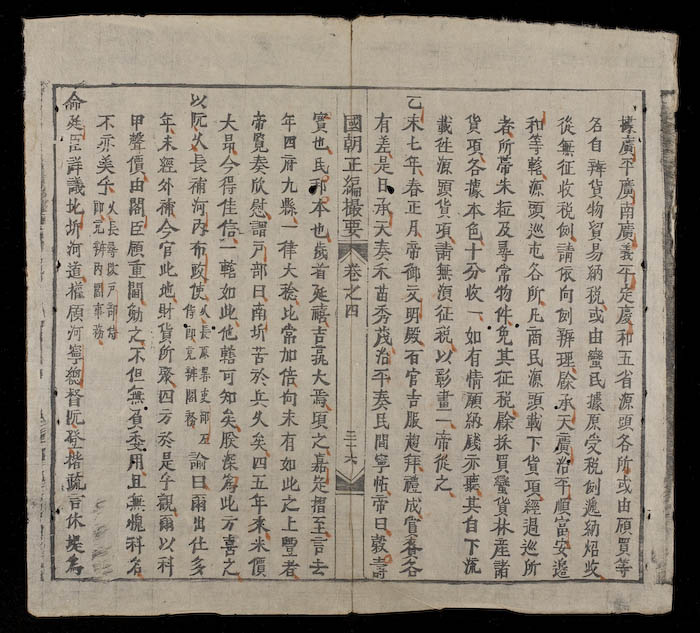 據廣平廣南廣義平定慶和五省源頭各所或由領買等
名自辦貨物貿易納稅或由蠻民據原受稅例遞納炤收
從無征收稅例請依向例辦理餘承天廣治平順富安邊
和等轄源頭巡屯各所凡商民源頭載下貨項經過巡所
者所帶朱粒及尋常物件免其征稅餘採買蠻貨林產諸
貨項各據本色十分收一如有情願納錢亦聽其自下流
載徃源頭貨項請無湏征稅以彰畫一帝從之
乙未七年春正月帝御文明殿百官吉服趨拜禮成賞賚各
有差是日承天奏禾苗秀茂治平奏民間寧怗帝曰穀壽
國朝正編撮要 卷之四 三十六
寶也民邦本也歲首延禧吉孰大焉頃之嘉定摺至言去
年四府九縣一律大稔比常加倍向未有如此之上豐者
帝覽奏欣慰謂戶部曰南圻苦於兵火矣四五年來米價
大昂今得佳信一轄如此他轄可知矣朕深為此方喜之
以阮久長補河內布政使久長原署吏部左侍郎兼辨閣務諭曰爾出仕多
年未經外補今官此地財貨所聚四方於是乎觀爾以科
甲聲價由閣臣願重閫勉之不但無負委用且無愧科名
不亦美乎久長尋改戶部侍郎兼辨內閣事務
命廷臣詳議北圻河道權領河寧總督阮登楷疏言休堤為